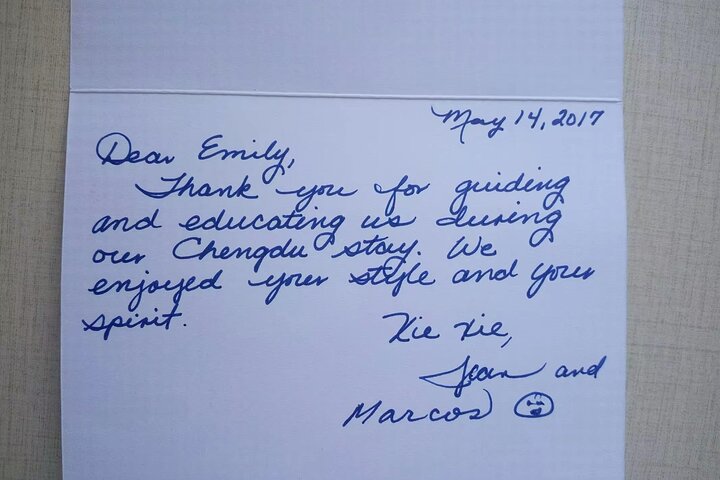 May 14, 2017
Dear Emily,
Thank you for guiding
and educating us during
our Chengdu stay. We
enjoyed your style and your
spirit.
Xie xie,
Jean and
Marcos